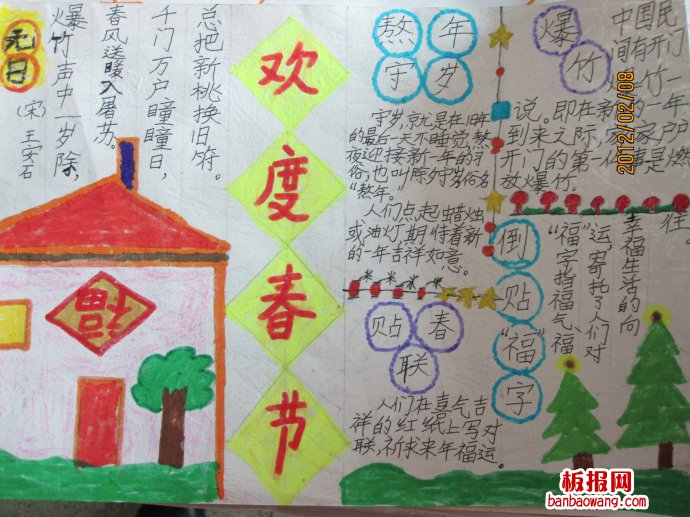 元日
(宋)王安石
爆竹声中一岁除,
春风送暖入屠苏。
千门万户瞳瞳日,
总把新桃换旧符。
福
欢度春节
熬年
守岁
守岁,就是在旧年
的最后一天不睡觉,熬
夜迎接新一年的习
俗,也叫除夕守岁俗名
“熬年。”
人们点起蜡烛
或油灯,期待着新
的一年吉祥如意。
贴春
联
人们在喜气吉
祥的红纸上写对
联,祈求来年福运。
爆
竹
中国民
间有开门
爆竹一
说。即在新的一年
到来之际,家家户户
开门的第一件事是燃
放爆竹。
倒贴“福”字
“福”字指福气、福
运,寄托了人们对
幸福生活的向
往。
2012/02/08
板报网
banbaowang.com